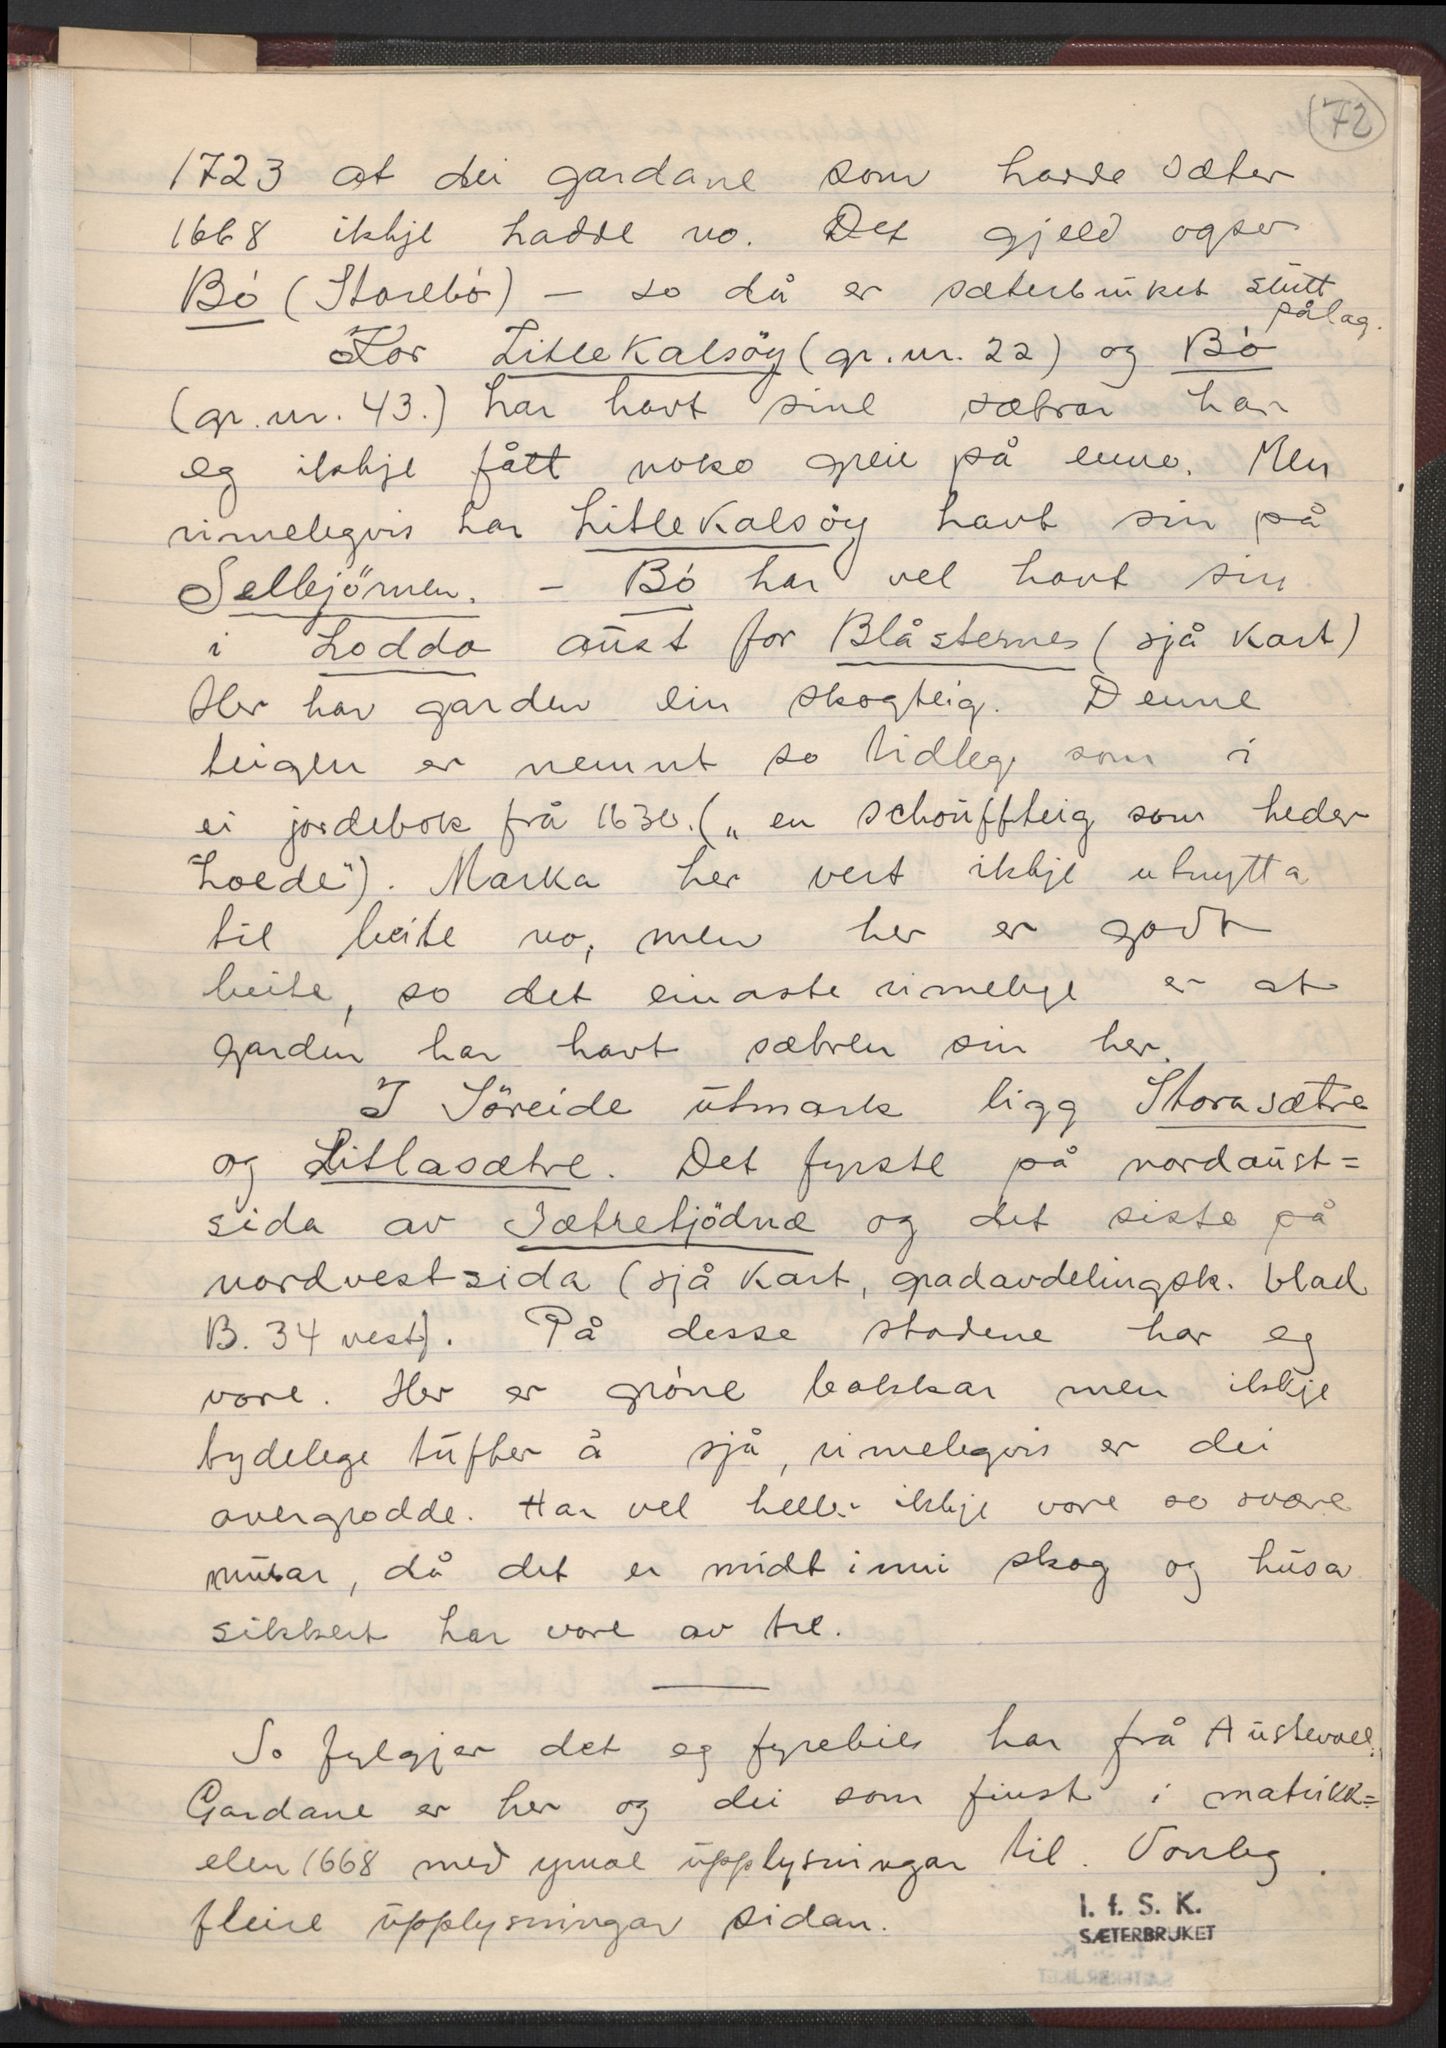 72
1723 at dei gardane som hadde sæter
1668 ikkje hadde no. Det gjeld ogso
Bö (Storebö) – so då er sæterbruket slutt
pålag.
Kor LitleKalsöy (gr.nr. 22) og Bö
(gr.nr. 43.) har havt sine sætrar har
eg ikkje fått noko greie på enno. Men
rimelegvis har LitleKalsöy havt sin på
Selbjörnen. – Bö har vel havt sin
i Loddo aust for Blåsternes (sjå kart)
Her har garden ein skogteig. Denne
teigen er nemnt so tidleg som i
ei jordebok frå 1630. („en schouffteig som heder
Loede"). Marka her vert ikkje utnytta
til beite no, men her er godt
beite, so det einaste rimelege er at
garden har havt sætren sin her.
I Söreide utmark ligg Storasætre
og Litlasætre. Det fyrste på nordaust=
sida av Sætretjödnæ og det siste på
nordvestsida (sjå kart, gradavdelingsk. blad
B. 34 vest). På desse stadene har eg
vore. Her er gröne bakkar men ikkje
tydelege tufter å sjå, rimelegvis er dei
overgrodde. Har vel heller ikkje vore so svære
murar, då det er midt inni skog og husa
sikkert har vore av tre.
So fylgjer det eg fyrebils har frå Austevoll.
Gardane er her og dei som finst i matrikk=
elen 1668 med ymse upplysningar til. Vonleg
fleire upplysningar sidan.
I. f. S. K.
SÆTERBRUKET